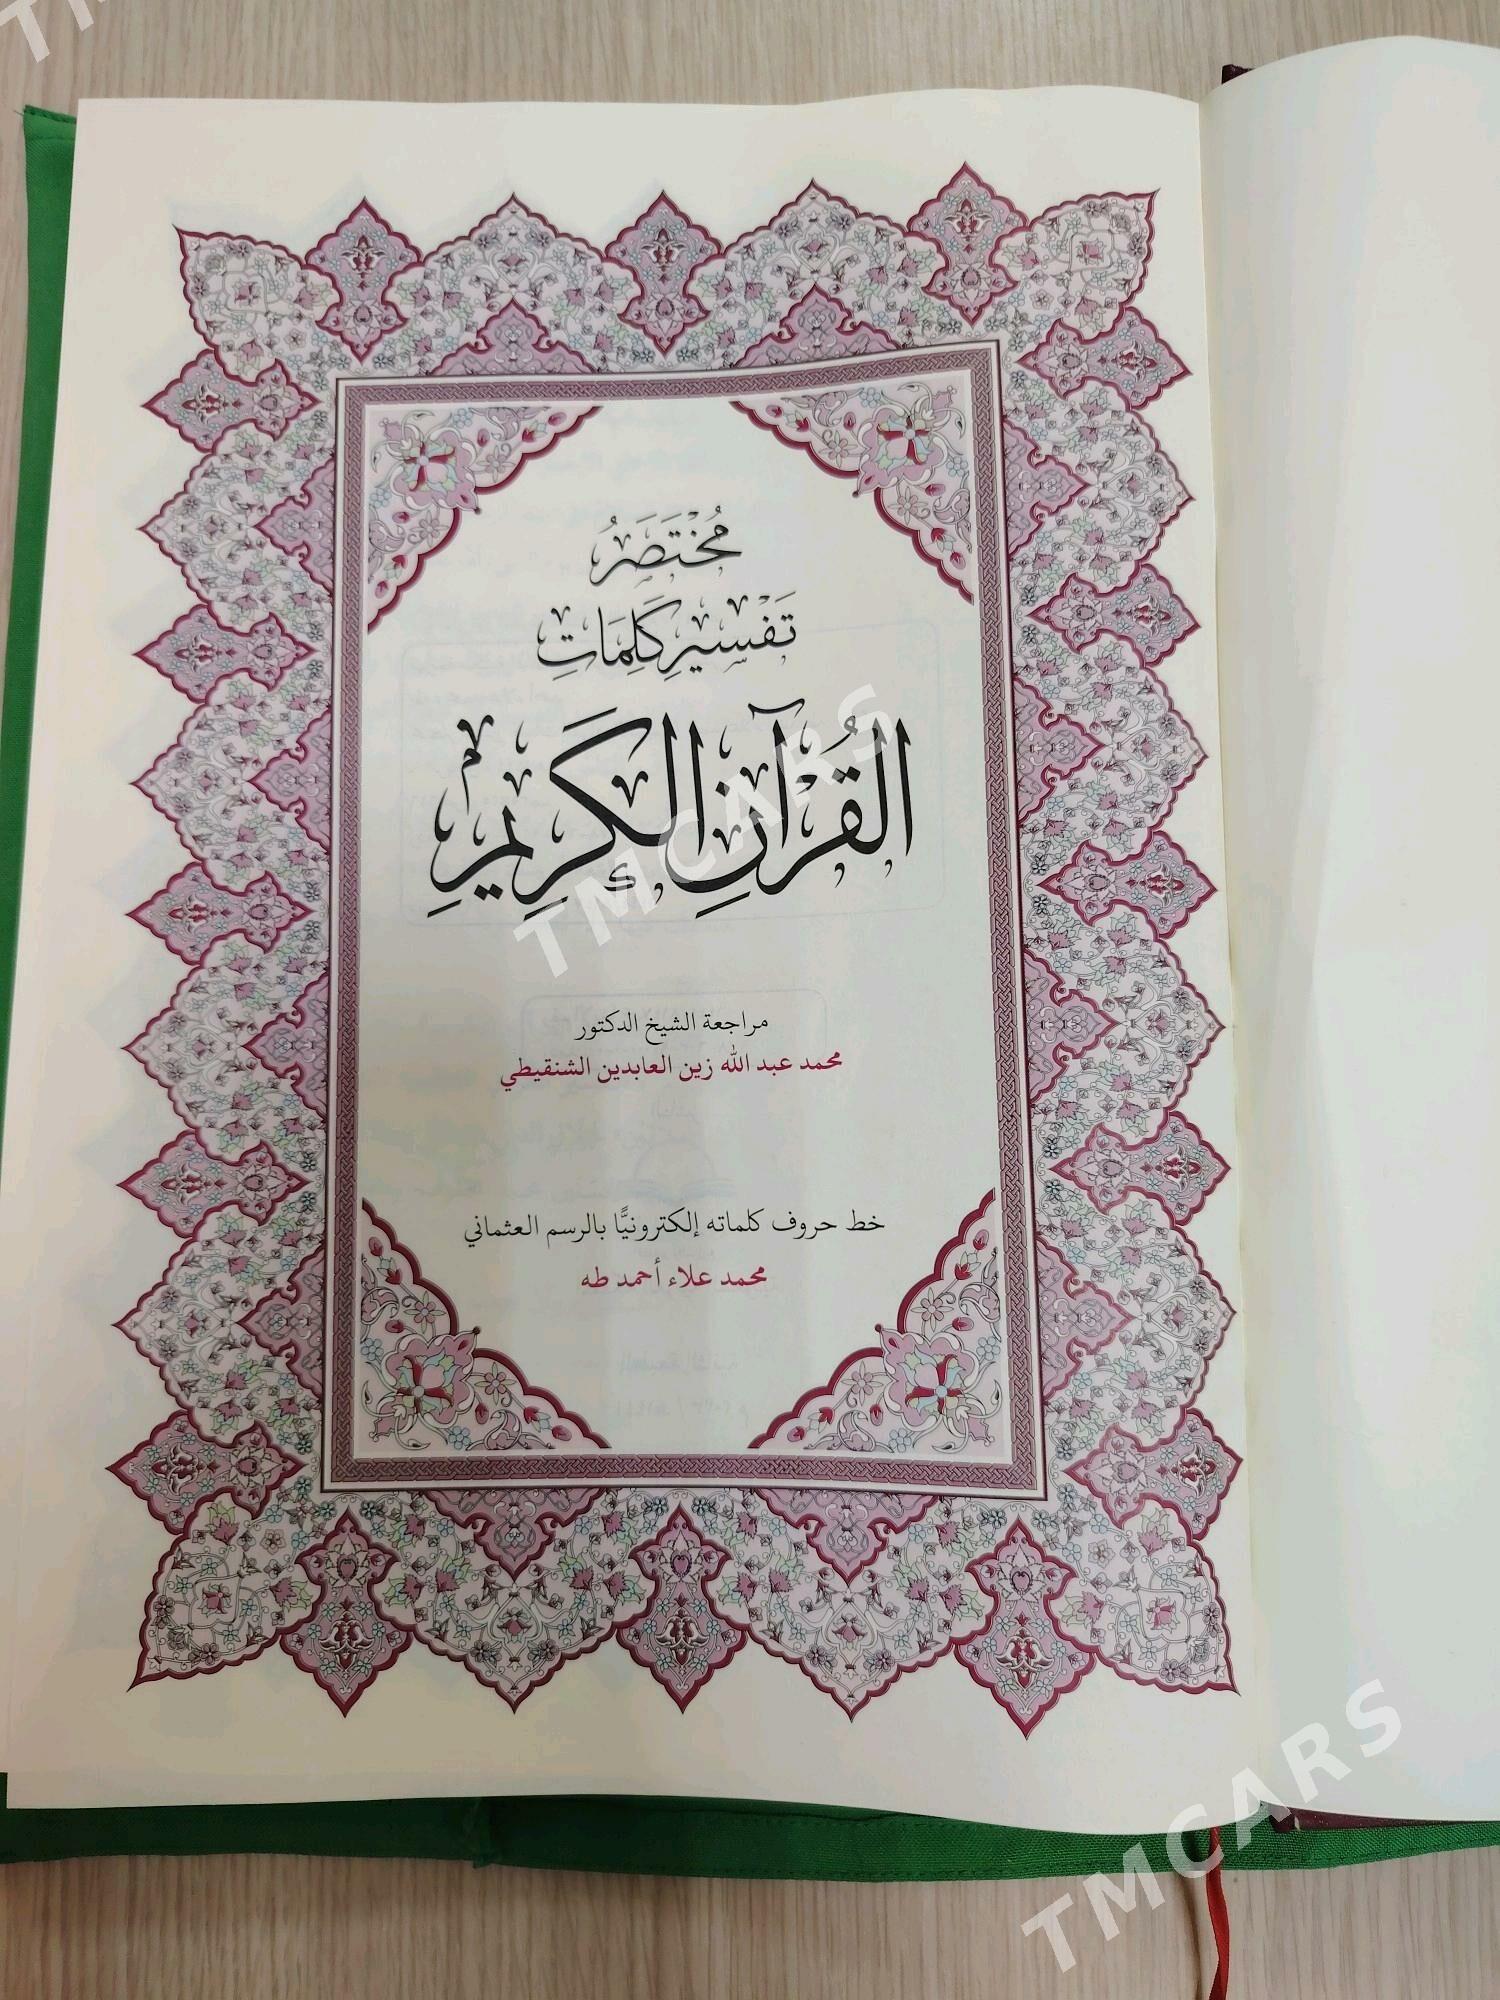 مُخْتَصَرُ
تَفْسِيرِ كَلِمَاتِ
القُرْآنِ الكَرِيمِ
مراجعة الشيخ الدكتور
محمد عبد الله زين العابدين الشنقيطي
خط حروف كلماته إلكترونيًّا بالرسم العثماني
محمد علاء أحمد طه
TMCARS
TMCARS